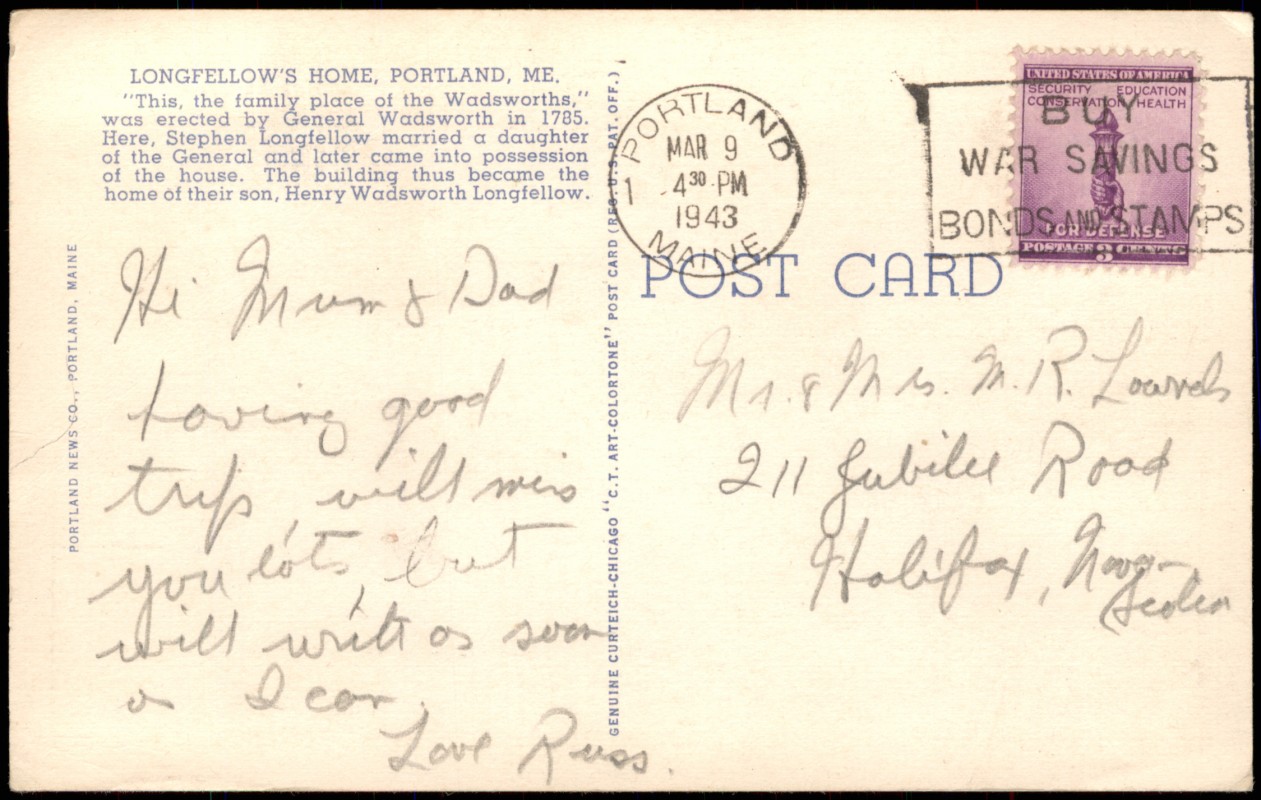 LONGFELLOW'S HOME, PORTLAND, ME.
"This, the family place of the Wadsworths,"
was erected by General Wadsworth in 1785.
Here, Stephen Longfellow married a daughter
of the General and later came into possession
of the house. The building thus became the
home of their son, Henry Wadsworth Longfellow.
PORTLAND NEWS CO., PORTLAND, MAINE
Hi Mum & Dad
having good
trip, will miss
you lots, but
will write as soon
as I can.
Love Russ.
GENUINE CURTEICH-CHICAGO "C.T. ART-COLORTONE" POST CARD (REG. U.S. PAT. OFF.)
PORTLAND
MAR 9
1 4 30 PM
1943
MAINE
BUY
WAR SAVINGS
BONDS AND STAMPS
UNITED STATES OF AMERICA
SECURITY EDUCATION
CONSERVATION HEALTH
FOR DEFENSE
POSTAGE 3 CENTS
POST CARD
Mr. & Mrs. M. R.
211 Jubilee Road
Halifax, Nova
Scotia